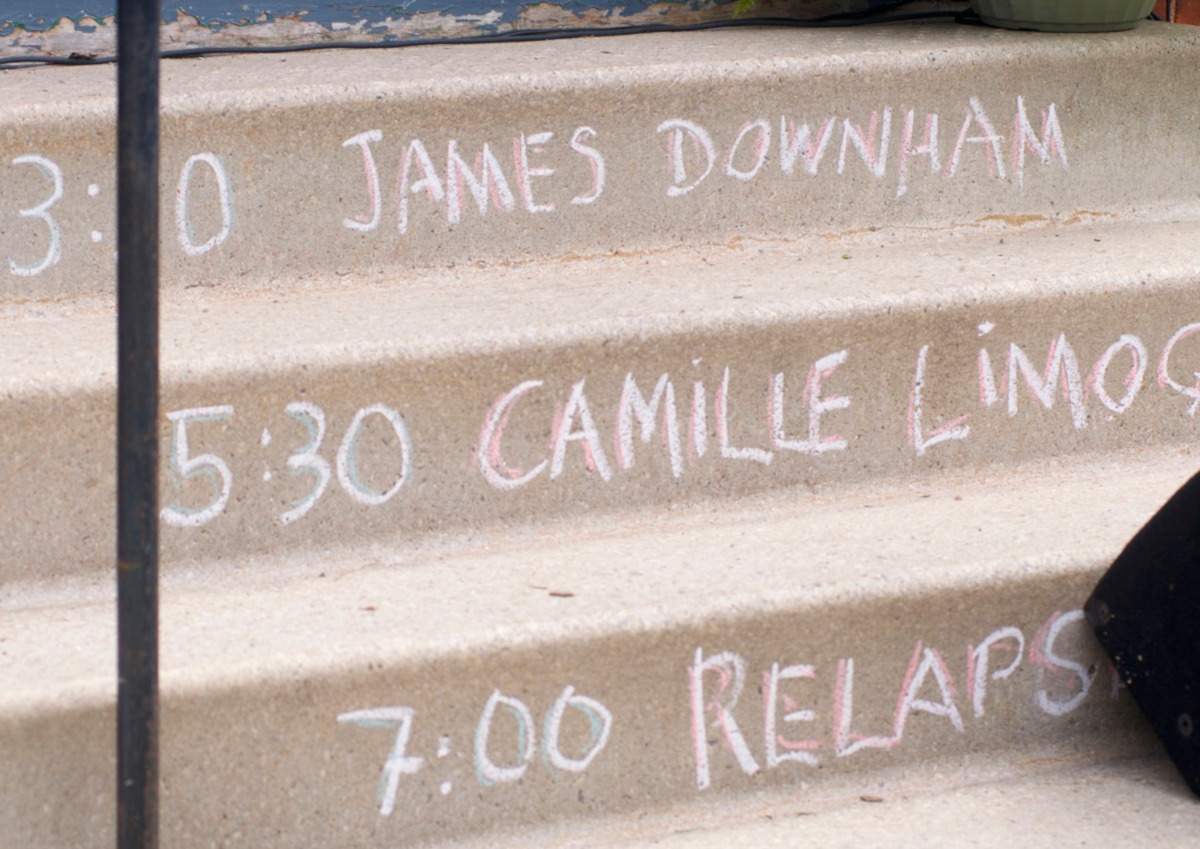 3: 0 JAMES DOWNHAM
5:30 CAMILLE LIMOG
7:00 RELAPS